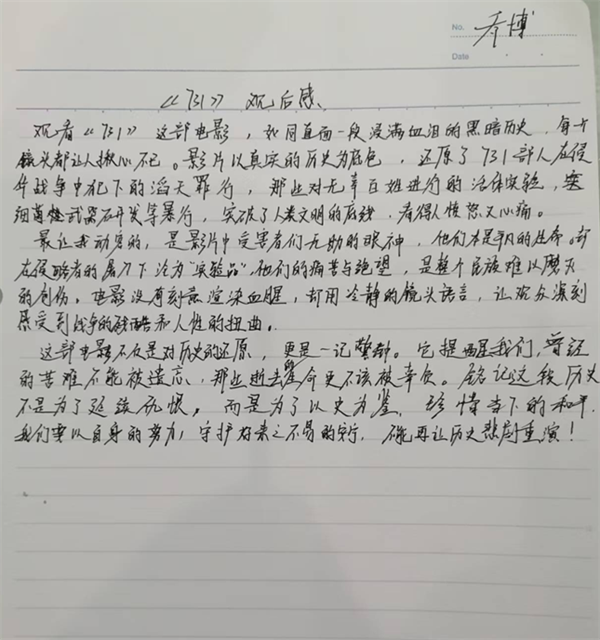 No. 乔博
Date
《731》观后感
观看《731》这部电影，如同直面一段浸满血泪的黑暗历史，每个
镜头都让人揪心不已。影片以真实的历史为底色，还原了731部人在侵
华战争中犯下的滔天罪行，那些对无辜百姓进行的活体实验，
细菌武器研发等暴行，突破了人类文明的底线，看得人愤怒又心痛。
最让我动容的，是影片中受害者们无助的眼神，他们本是平凡的生命。却
在侵略者的屠刀下沦为"实验品"，他们的痛苦与绝望，是整个民族难以磨灭
的创伤。电影没有刻意渲染血腥，却用冷静的镜头语言，让观众深刻
感受到战争的残酷和人性的扭曲。
这部电影不仅是对历史的还原，更是一记警钟。它提醒我们，曾经
的苦难不能被遗忘，那些逝去的生命更不该被辜负。铭记这段历史
不是为了延续仇恨，而是为了以史为鉴，珍惜当下的和平，
我们要以自身的努力，守护好来之不易的安宁，不能再让历史悲剧重演！